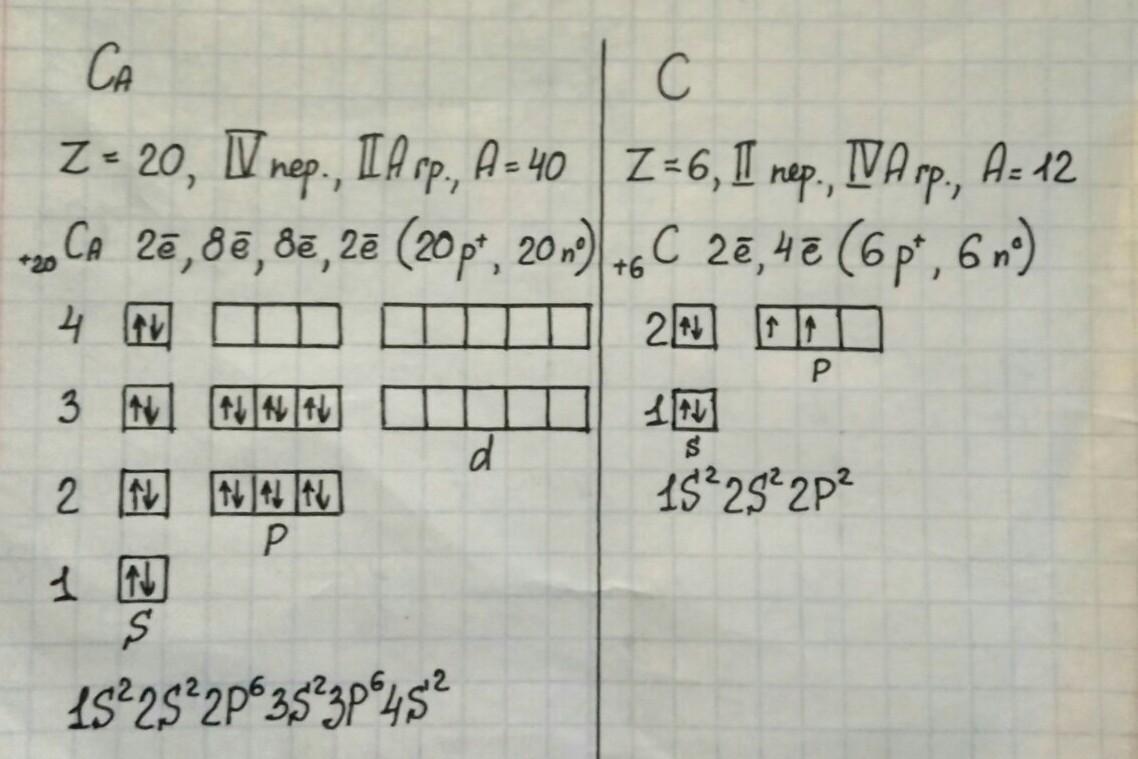 Ca
Z = 20, IV пер., II А гр., А = 40
+20 Ca 2ē, 8ē, 8ē, 2ē (20p⁺, 20n⁰)
4 ↑↓
3 ↑↓ ↑↓ ↑↓ ↑↓
d
2 ↑↓ ↑↓ ↑↓ ↑↓
p
1 ↑↓
S
1S²2S²2P⁶3S²3P⁶4S²
C
Z = 6, II пер., IV А гр., А = 12
+6 C 2ē, 4ē (6p⁺, 6n⁰)
2 ↑↓ ↑ ↑
p
1 ↑↓
s
1S²2S²2P²